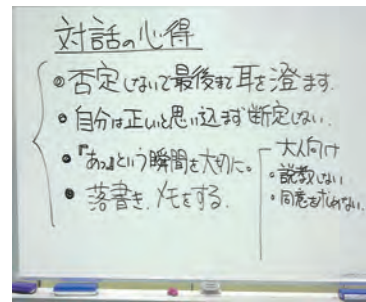 対話の心得
• 否定しないで最後まで耳を澄ます.
• 自分は正しいと思い込まず断定しない.
• 『あっ』という瞬間を大切に。
• 落書き.メモをする.
大人向け
• 説教しない
• 同意を求めない.